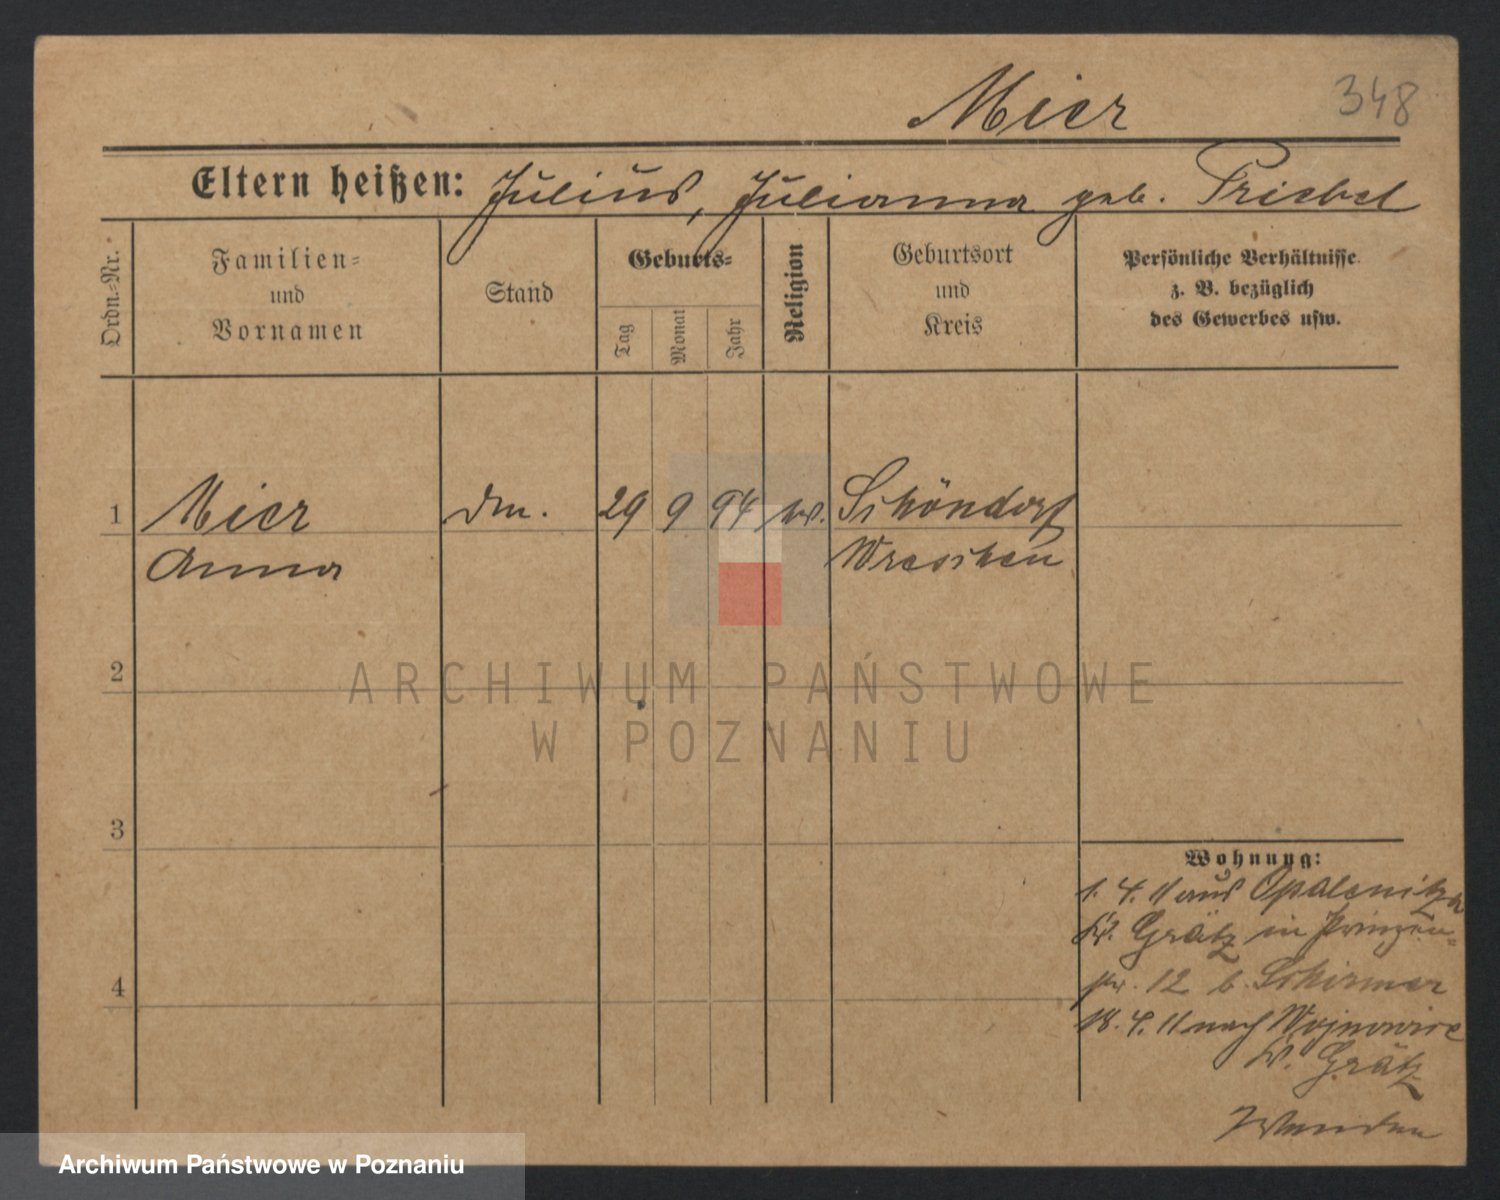 Mier 348
Eltern heißen: Julius, Julianna geb. Priebel
Ordn.-Nr.
Familien-
und
Vornamen
Stand
Geburts-
Tag
Monat
Jahr
Religion
Geburtsort
und
Kreis
Persönliche Verhältnisse
z. B. bezüglich
des Gewerbes usw.
1 Mier Dm. 29 9 94 ev. Schöndorf
Anna Wreschen
2
ARCHIWUM PAŃSTWOWE
W POZNANIU
3
Wohnung:
1. 4. 11 aus Opalenitza
Kr. Grätz in Prinzen-
str. 12 b. Schirmer
18. 4. 11 nach Wojnowice
Kr. Grätz
Wenden
4
Archiwum Państwowe w Poznaniu